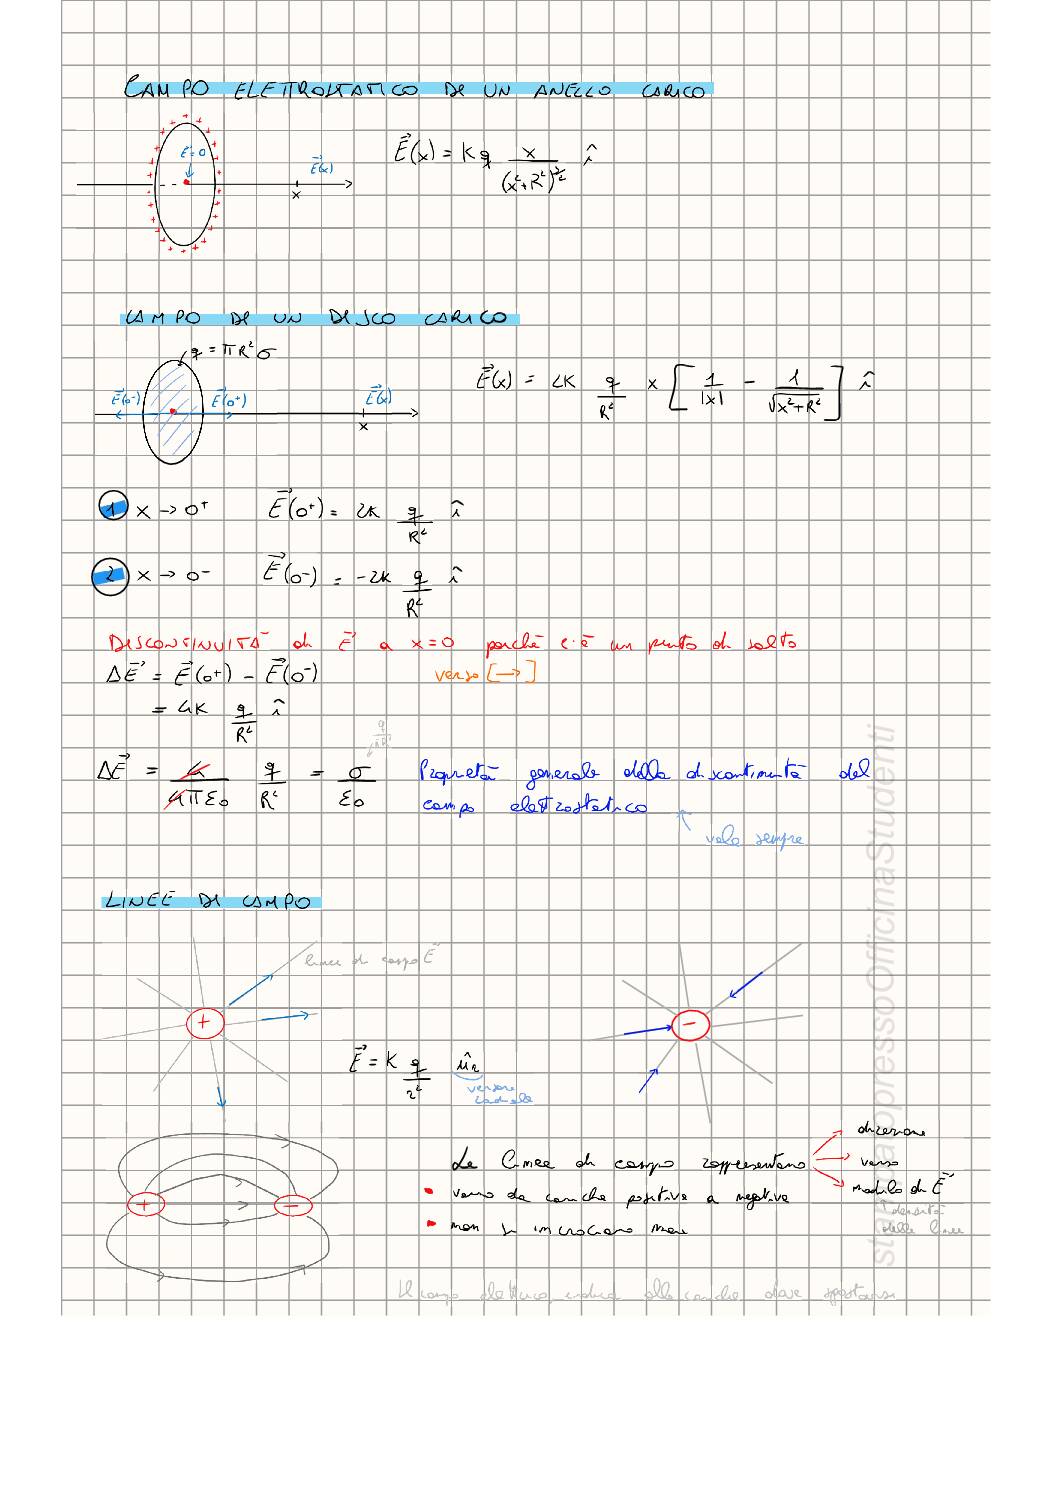 CAMPO ELETTROSTATICO DI UN ANELLO CARICO
E=0
E⃗(x)
x
E⃗(x) = K q x/(x²+R²)^(3/2) î
CAMPO DI UN DISCO CARICO
q = πR²σ
E⃗(0⁻)
E⃗(0⁺)
E⃗(x)
x
E⃗(x) = 2K q/R² x [ 1/|x| - 1/√(x²+R²) ] î
1 x → 0⁺ E⃗(0⁺) = 2K q/R² î
2 x → 0⁻ E⃗(0⁻) = -2K q/R² î
DISCONTINUITÀ di E⃗ a x=0 perchè c'è un punto di salto
ΔE⃗ = E⃗(0⁺) - E⃗(0⁻) verso [→]
= 4K q/R² î
q/πR²
ΔE⃗ = 4/4πε₀ q/R² = σ/ε₀ Proprietà generale della discontinuità del
campo elettrostatico
vale sempre
LINEE DI CAMPO
linee di campo E⃗
+
-
E⃗ = K q/r² ûr
versore
radiale
+
-
Le linee di campo rappresentano
direzione
verso
modulo di E⃗
densità
delle linee
• vanno da cariche positive a negative
• non si incrociano mai
Il campo elettrico indica alle cariche dove spostarsi
stampatopressoOfficinaStudenti